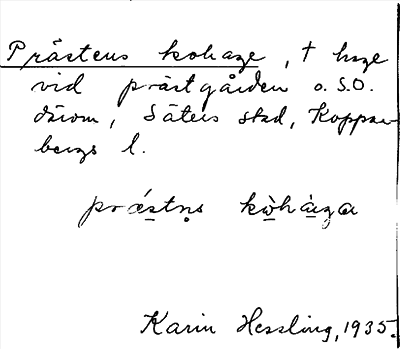 Prästens kohage, † hage
vid prästgården o. S.O.
därom, Säters stad, Koppar-
bergs l.
præstn̥s kòhàga
Karin Hessling, 1935.